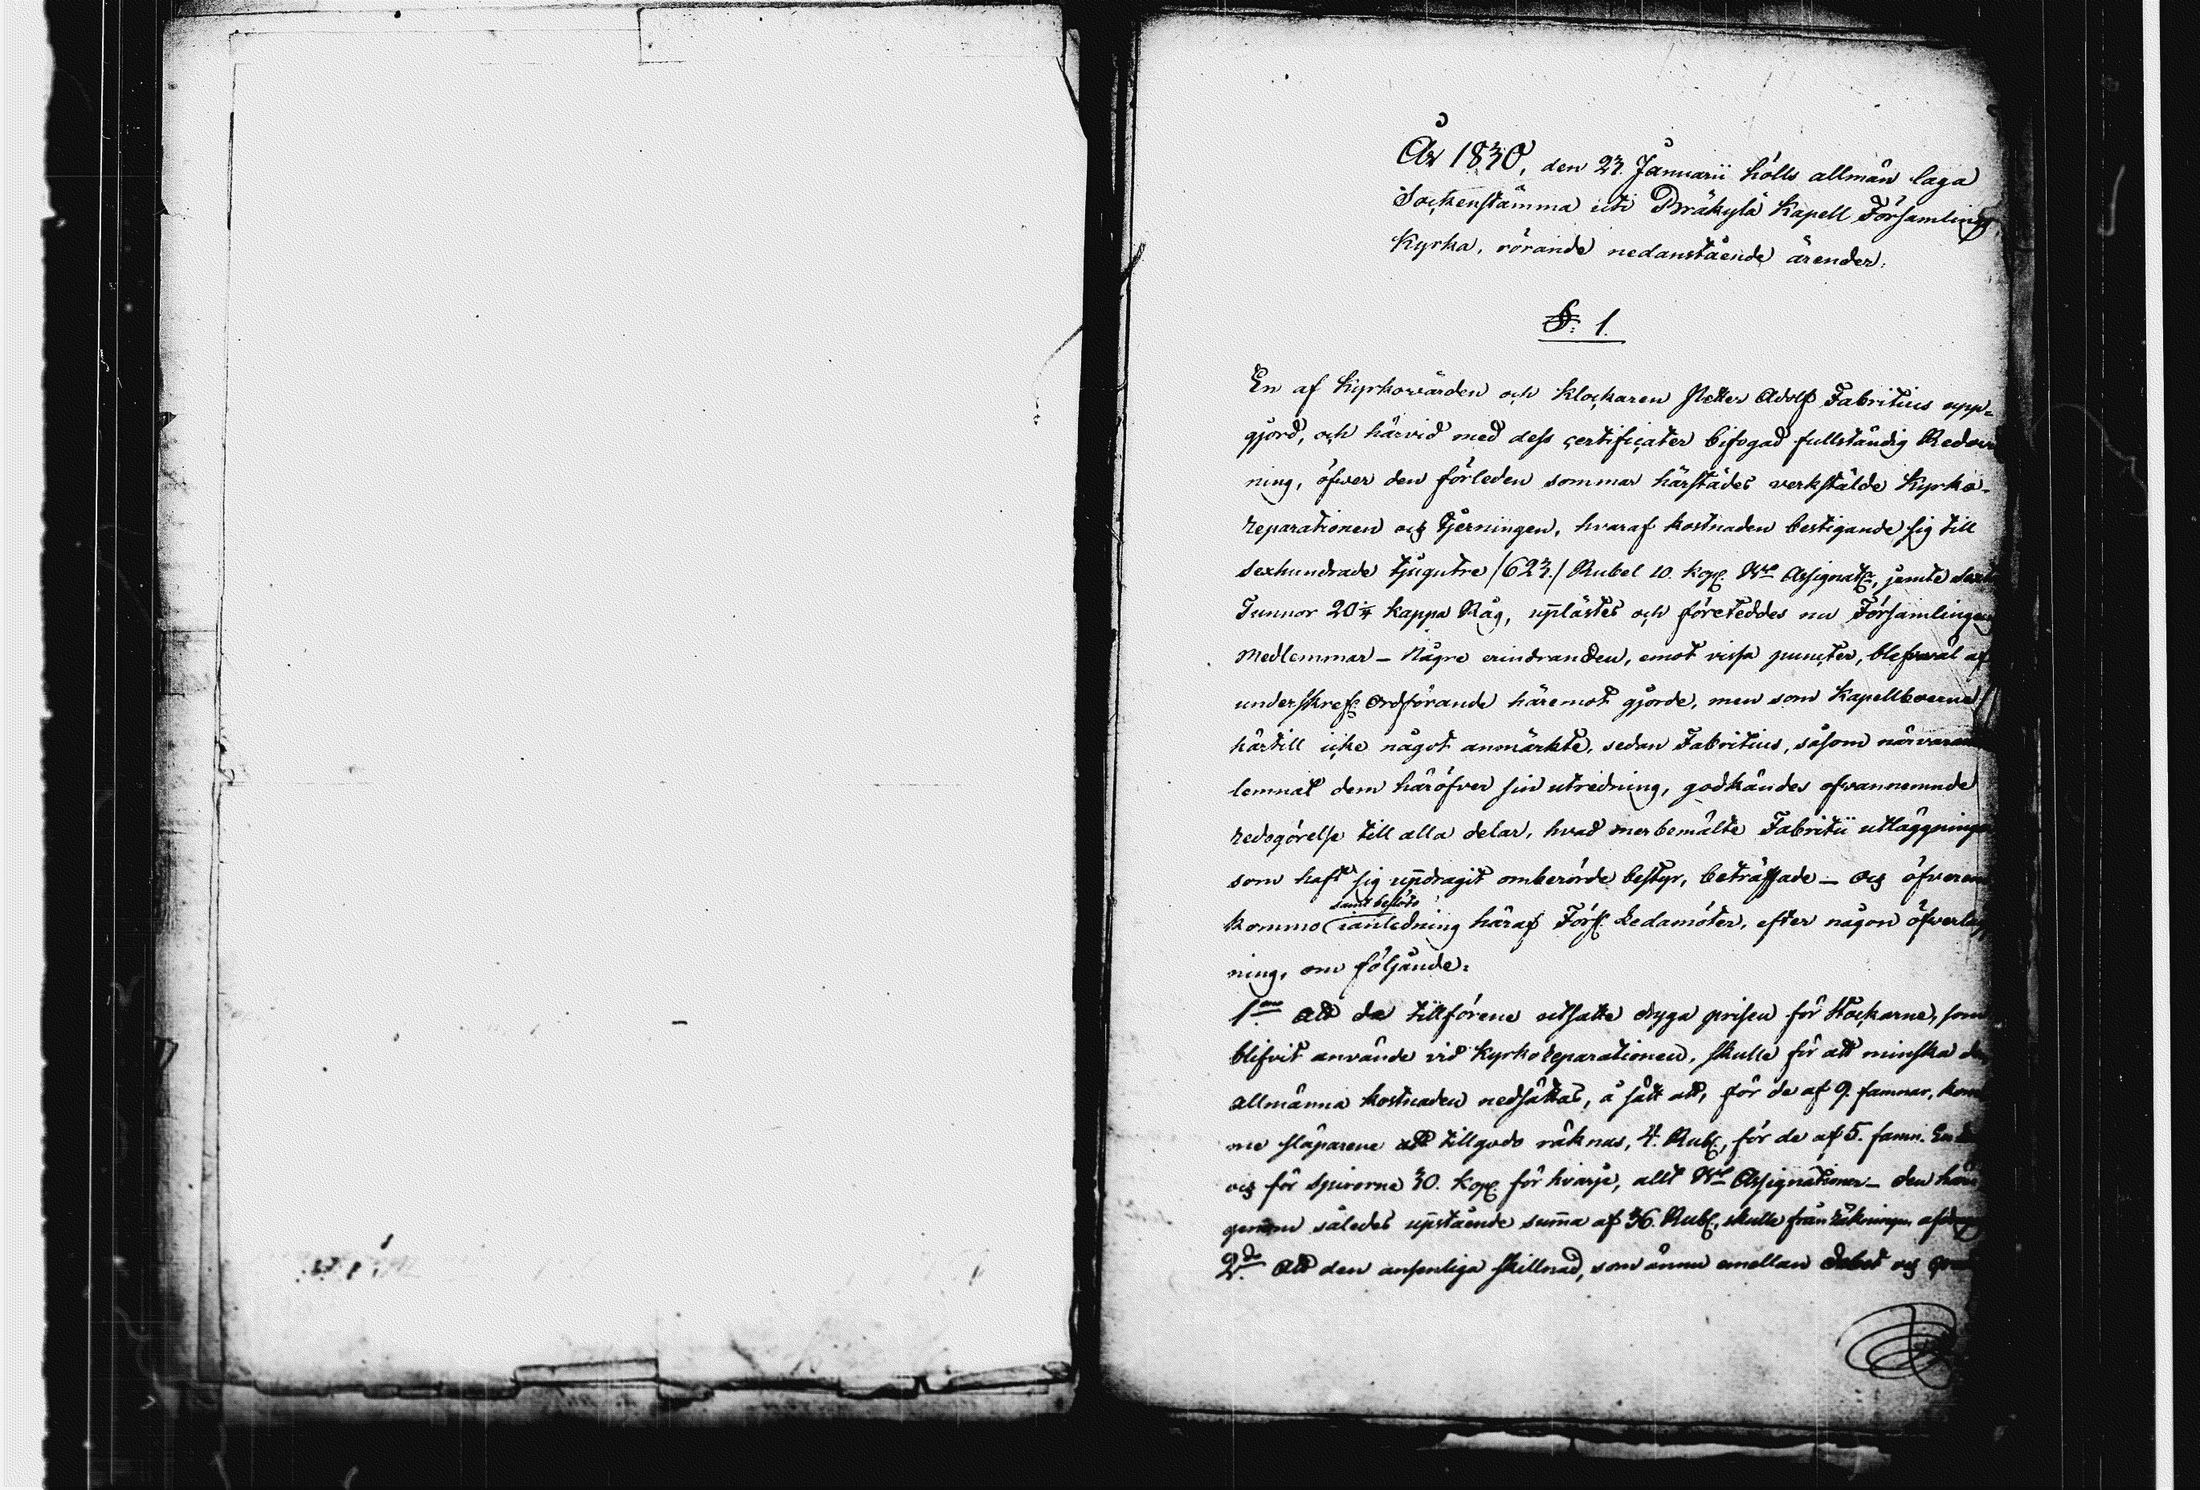 År 1830, den 23. Januarii hölls allmän laga
Sockenstämma uti Bräkylä Kapell Församlings
Kyrka, rörande nedanstående ärender:
§. 1.
En af Kyrkovärden och Klockaren Petter Adolf Fabritius upp=
gjord, och härvid med dess certificater bifogad fullständig Redovis
ning, öfwer den förleden sommar härstädes verkstälde Kyrko-
reparationen och tjerningen, hvaraf kostnaden bestigande sig till
sexhundrade tjugutre /623./ Rubel 10. kop. Bco Assignat:r, jemte
Tunnor 20 kappa Råg, uplästes och företeddes nu Församlingens
Medlemmar – Någre erindranden, emot vissa puncter, blefvo väl af
underskref: Ordförande häremot gjorde, men som Kapellboerne
härtill icke något anmärkte, sedan Fabritius, såsom närvarande
lemnat dem häröfver sin utredning, godkändes ofvannemnde
redogörelse till alla delar, hvad merbemälte Fabritii utläggningar
som haft sig updragit omberörde bestyr, beträffade – och öfverens
samt beslöto
kommo i anledning häraf Förs: Ledamöter, efter någon öfverlägg
ning, om följande:
1:mo Att de tillförene utsatte dryga prisen för Stockarne, som
blifvit använde vid Kyrkoreparationen, skulle för att minska den
allmänna kostnaden nedsättas, å sätt att, för de af 9. famnar, kom
me släparene att tillgodo räknas, 4. Rub:, för de af 5. famn.
och för spirorne 30. kop: för hvarje, allt Bco Assignationer – den här
genom således upstående summa af 36. Rub:, skulle från räkningen
2:do Att den ansenliga skillnad, som ännu emellan debet och